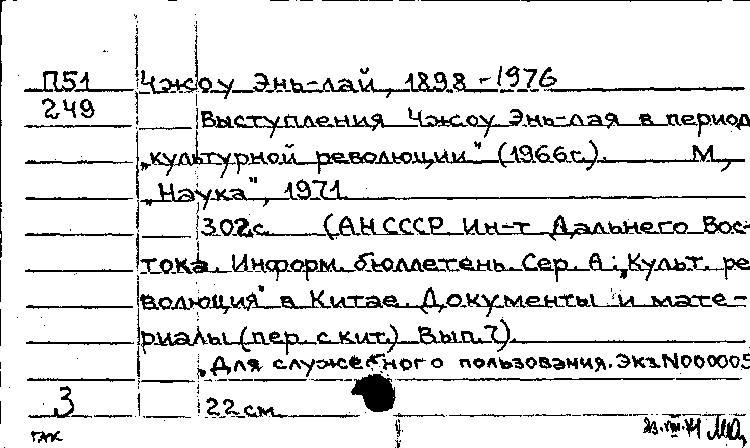 П51 Чжоу Энь-лай, 1898-1976
249 Выступления Чжоу Энь-лая в период
„культурной революции" (1966г.). М.,
„Наука", 1971.
302с. (АН СССР Ин-т Дальнего Вос-
тока. Информ. бюллетень. Сер. А: „Культ. ре
волюция" в Китае. Документы и мате-
риалы (пер. с кит.) Вып. 7).
„Для служебного пользования. Экз N000005
3 22 см.